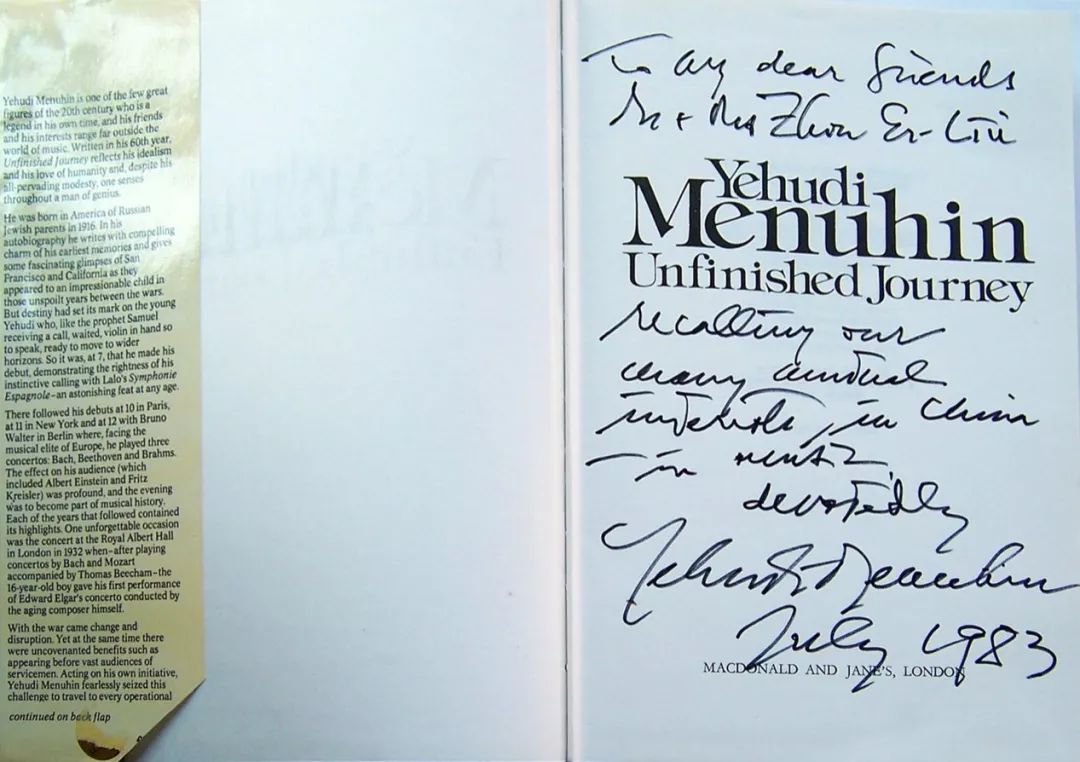 Yehudi Menuhin is one of the few great
figures of the 20th century who is a
legend in his own time, and his friends
and his interests range far outside the
world of music. Written in his 60th year,
Unfinished Journey reflects his idealism
and his love of humanity and, despite his
all-pervading modesty, one senses
throughout a man of genius.
He was born in America of Russian
Jewish parents in 1916. In his
autobiography he writes with compelling
charm of his earliest memories and gives
some fascinating glimpses of San
Francisco and California as they
appeared to an impressionable child in
those unspoilt years between the wars.
But destiny had set its mark on the young
Yehudi who, like the prophet Samuel
receiving a call, waited, violin in hand so
to speak, ready to move to wider
horizons. So it was, at 7, that he made his
debut, demonstrating the rightness of his
instinctive calling with Lalo's Symphonie
Espagnole–an astonishing feat at any age.
There followed his debuts at 10 in Paris,
at 11 in New York and at 12 with Bruno
Walter in Berlin where, facing the
musical elite of Europe, he played three
concertos: Bach, Beethoven and Brahms.
The effect on his audience (which
included Albert Einstein and Fritz
Kreisler) was profound, and the evening
was to become part of musical history.
Each of the years that followed contained
its highlights. One unforgettable occasion
was the concert at the Royal Albert Hall
in London in 1932 when–after playing
concertos by Bach and Mozart
accompanied by Thomas Beecham–the
16-year-old boy gave his first performance
of Edward Elgar's concerto conducted by
the aging composer himself.
With the war came change and
disruption. Yet at the same time there
were uncovenanted benefits such as
appearing before vast audiences of
servicemen. Acting on his own initiative,
Yehudi Menuhin fearlessly seized this
challenge to travel to every operational
continued on back flap
To my dear friends
Mr + Mrs Zhou Er-Liu
Yehudi
Menuhin
Unfinished Journey
recalling our
many mutual
interests, in China
– in music
devotedly
Yehudi Menuhin
July 1983
MACDONALD AND JANE'S, LONDON